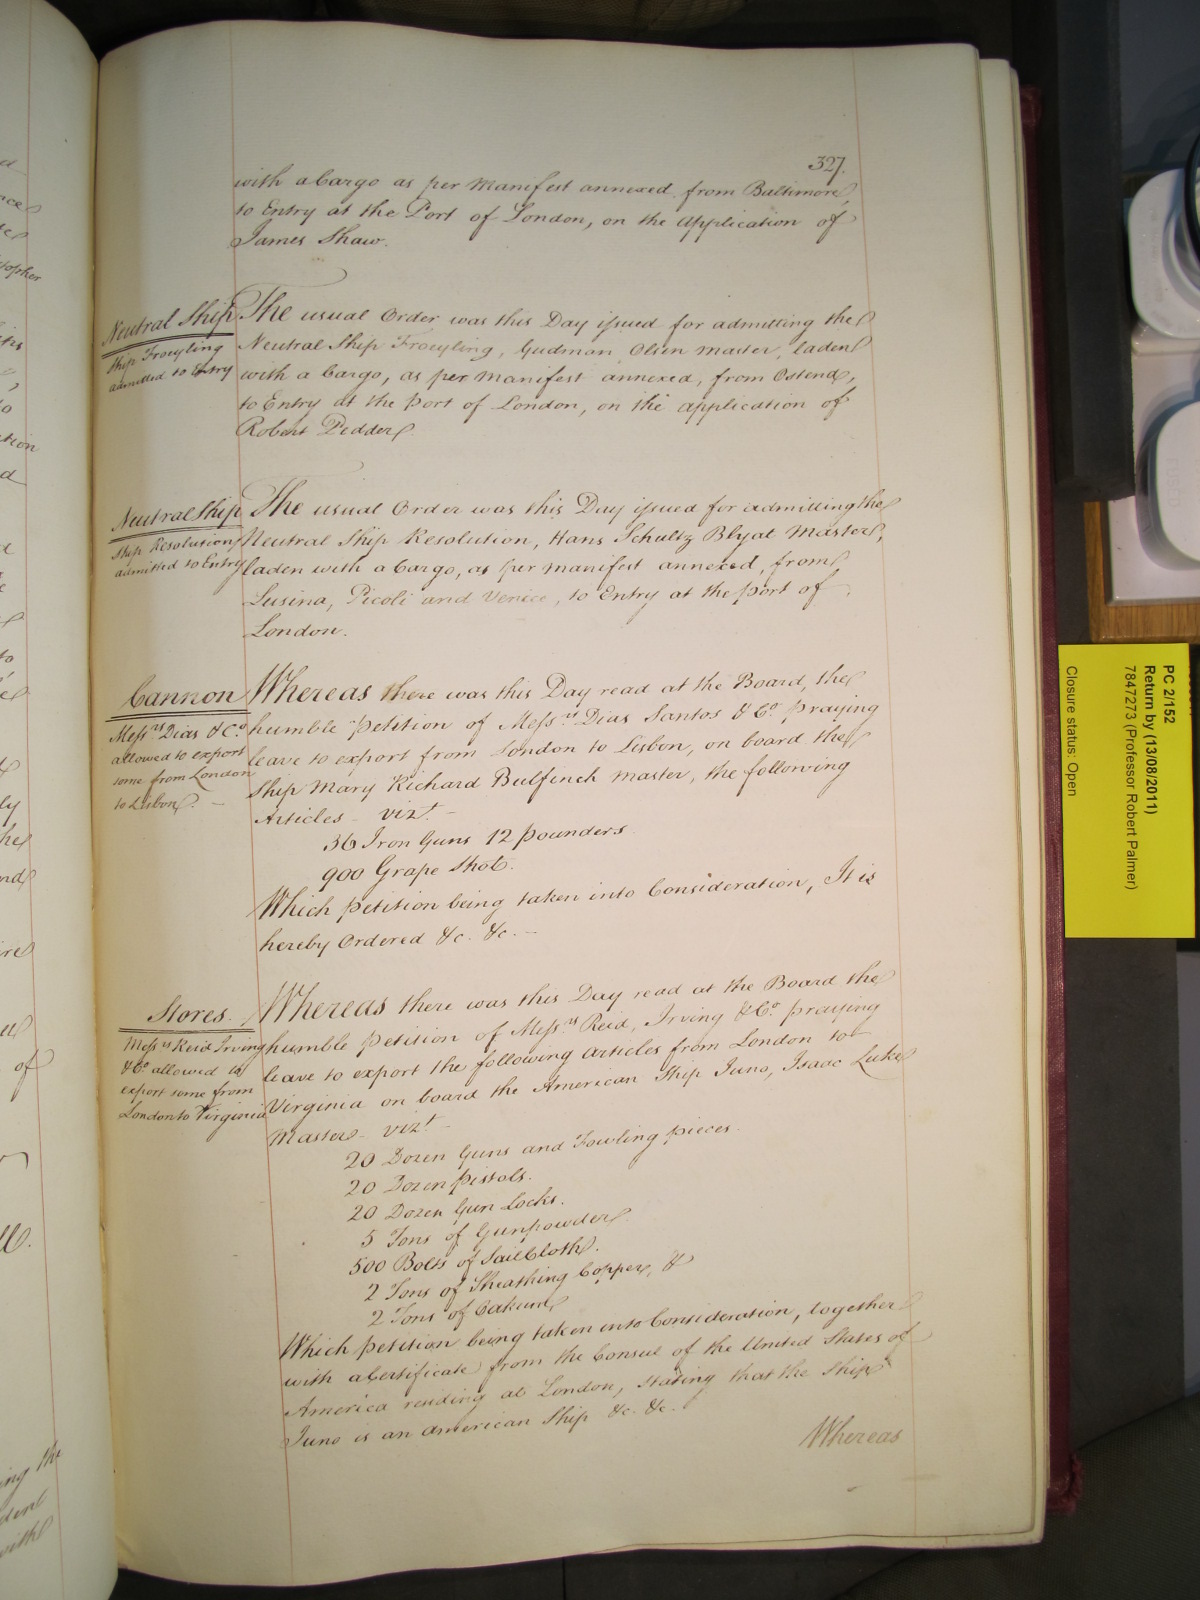 327.
with a Cargo as per Manifest annexed from Baltimore,
to Entry at the Port of London, on the Application of
James Shaw.
Neutral Ship
Ship Froeyling
admitted to Entry
The usual Order was this Day issued for admitting the
Neutral Ship Froeyling, Gudman Olsen Master, laden
with a Cargo, as per Manifest annexed, from Ostend,
to Entry at the Port of London, on the application of
Robert Pedder
Neutral Ship
Ship Resolution
admitted to Entry
The usual Order was this Day issued for admitting the
Neutral Ship Resolution, Hans Schultz Blyat Master,
laden with a Cargo, as per Manifest annexed, from
Lusina, Picoli and Venice, to Entry at the Port of
London.
Cannon
Messrs Dias & Co.
allowed to export
some from London
to Lisbon. -
Whereas there was this Day read at the Board, the
humble Petition of Messrs Dias Santos & Co. praying
leave to export from London to Lisbon, on board the
Ship Mary Richard Bulfinch Master, the following
Articles - vizt. -
36 Iron Guns 12 Pounders.
900 Grape Shot.
Which Petition being taken into Consideration, It is
hereby Ordered &c. &c. -
Stores.
Messrs Reid Irving
& Co. allowed to
export some from
London to Virginia
Whereas there was this Day read at the Board the
humble Petition of Messrs Reid, Irving & Co. praying
leave to export the following Articles from London to
Virginia on board the American Ship Juno, Isaac Luke
Master - vizt. -
20 Dozen Guns and Fowling pieces.
20 Dozen Pistols.
20 Dozen Gun Locks.
5 Tons of Gunpowder
500 Bolts of Sail Cloth.
2 Tons of Sheathing Copper, &
2 Tons of Oakum
Which Petition being taken into Consideration, together
with a Certificate from the Consul of the United States of
America residing at London, stating that the Ship
Juno is an American Ship &c. &c.
Whereas
PC 2/152
Return by (13/08/2011)
7847273 (Professor Robert Palmer)
Closure status: Open